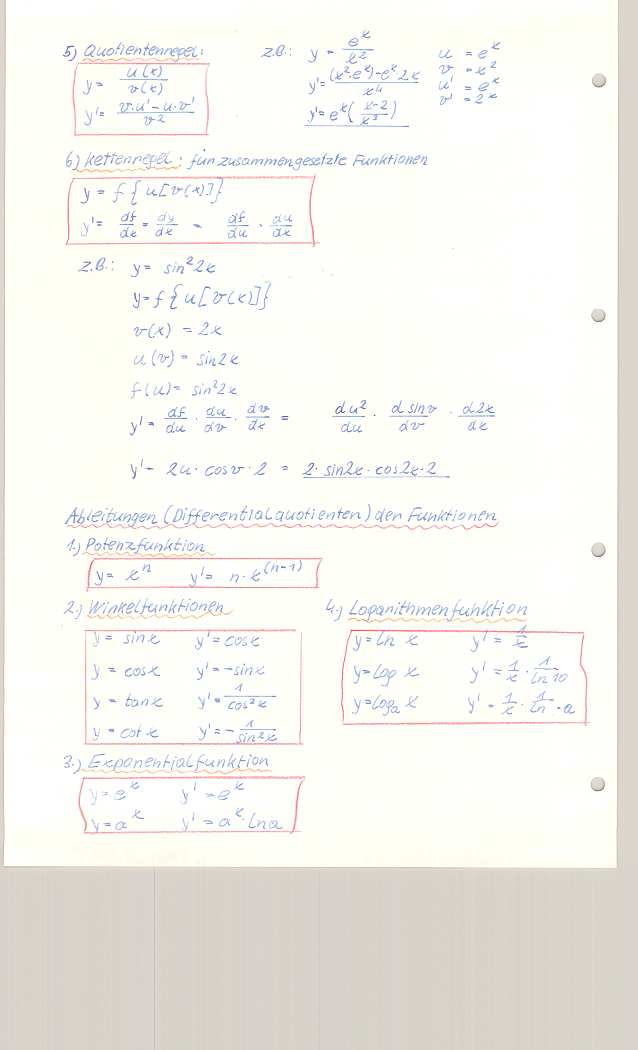 5) Quotientenregel:
y = u(x) / v(x)
y' = v·u' - u·v' / v2
z.B.: y = e^x / x^2
y' = (x^2·e^x) - e^x 2x / x^4
y' = e^x ( x-2 / x^3 )
u = e^x
v = x^2
u' = e^x
v' = 2^x
6) Kettenregel: für zusammengesetzte Funktionen
y = f { u [ v(x) ] }
y' = df/dx = dy/dx = df/du · du/dx
z.B.: y = sin^2 2x
y = f { u [ v(x) ] }
v(x) = 2x
u(v) = sin2x
f(u) = sin^2 2x
y' = df/du · du/dv · dv/dx = du^2/du · d sinv/dv · d2x/dx
y' = 2u · cosv · 2 = 2 · sin2x · cos2x · 2
Ableitungen (Differentialquotienten) der Funktionen
1.) Potenzfunktion
y = x^n y' = n · x^(n-1)
2.) Winkelfunktionen
y = sinx y' = cosx
y = cosx y' = -sinx
y = tanx y' = 1 / cos^2 x
y = cotx y' = - 1 / sin^2 x
3.) Exponentialfunktion
y = e^x y' = e^x
y = a^x y' = a^x · lna
4.) Logarithmenfunktion
y = ln x y' = 1/x
y = log x y' = 1/x · 1/ln 10
y = log_a x y' = 1/x · 1/ln · a